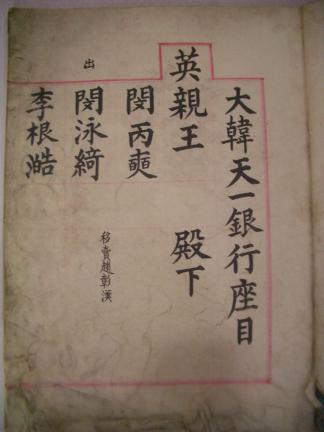 大韓天一銀行座目
英親王 殿下
閔丙奭
出
閔泳綺
移賣趙彰漢
李根澔